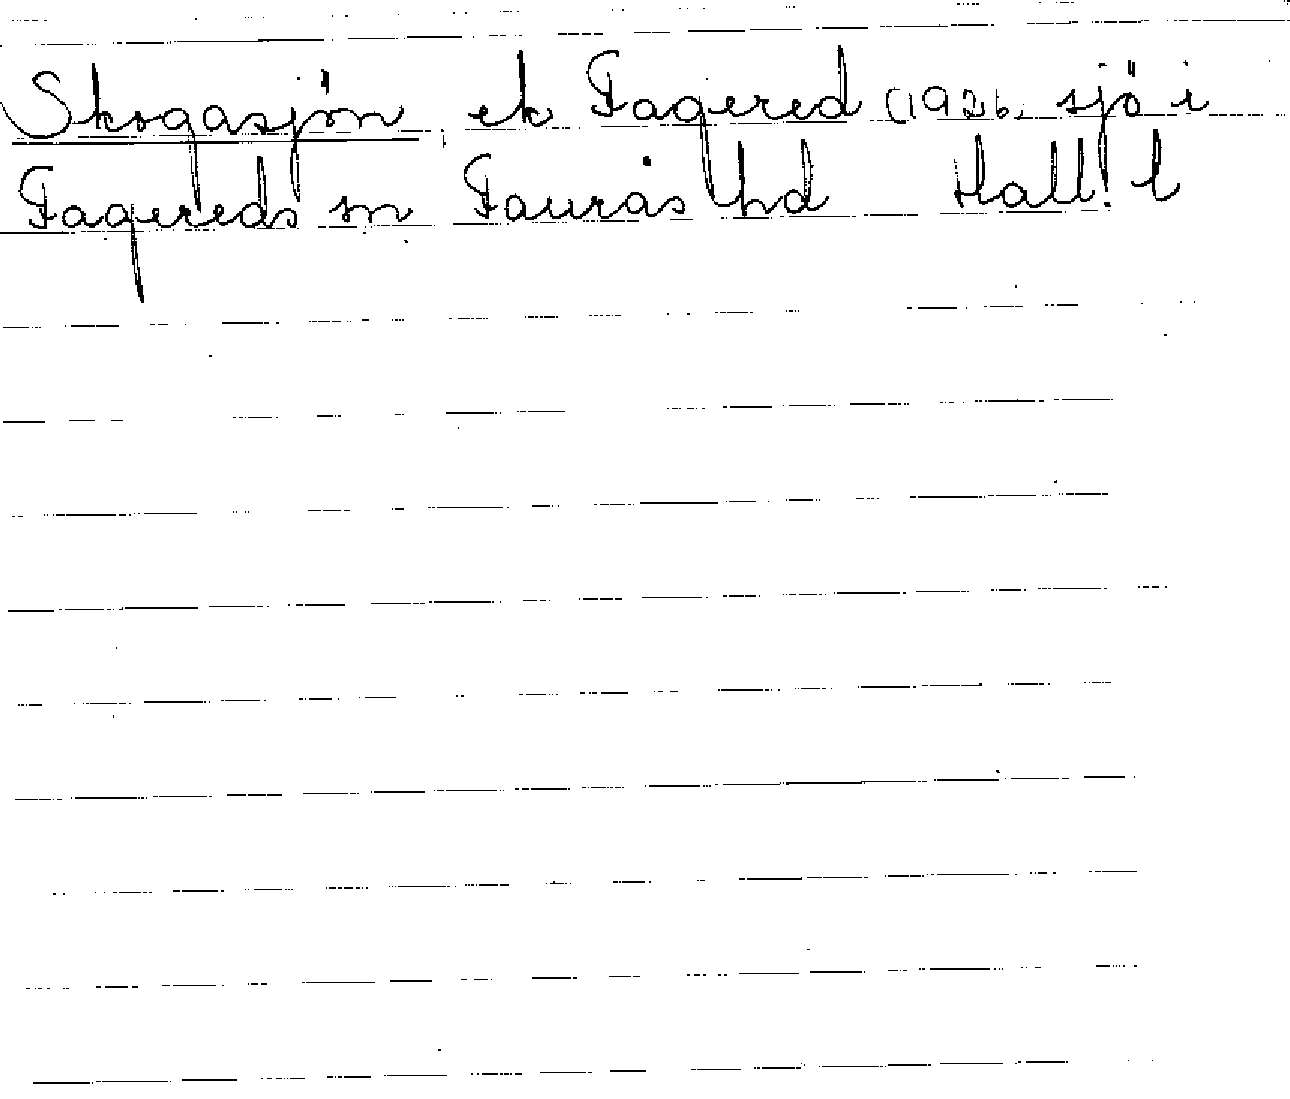 Skogasjön, ek Fagered (1926, sjö i
Fagereds sn Faurås hd Hall. l